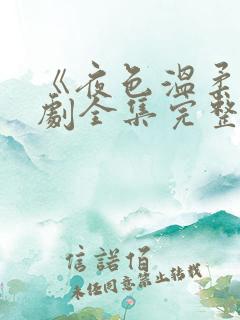 《夜色温柔
劇全集完整
信諾佰
未经同意禁止转载